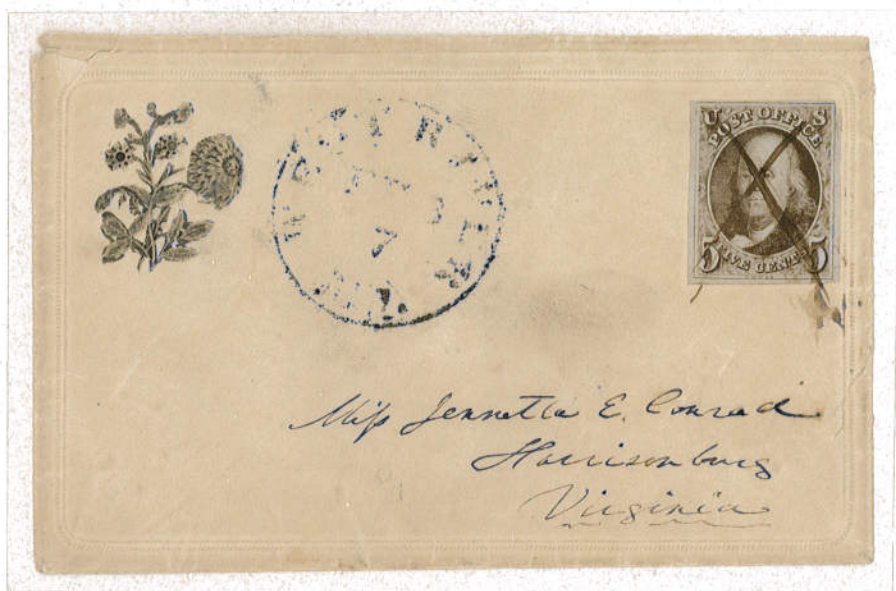 WEST RIVER
7
Md.
U S
POST OFFICE
5 FIVE CENTS 5
Miss Jennetta E. Conrad
Harrisonburg
Virginia